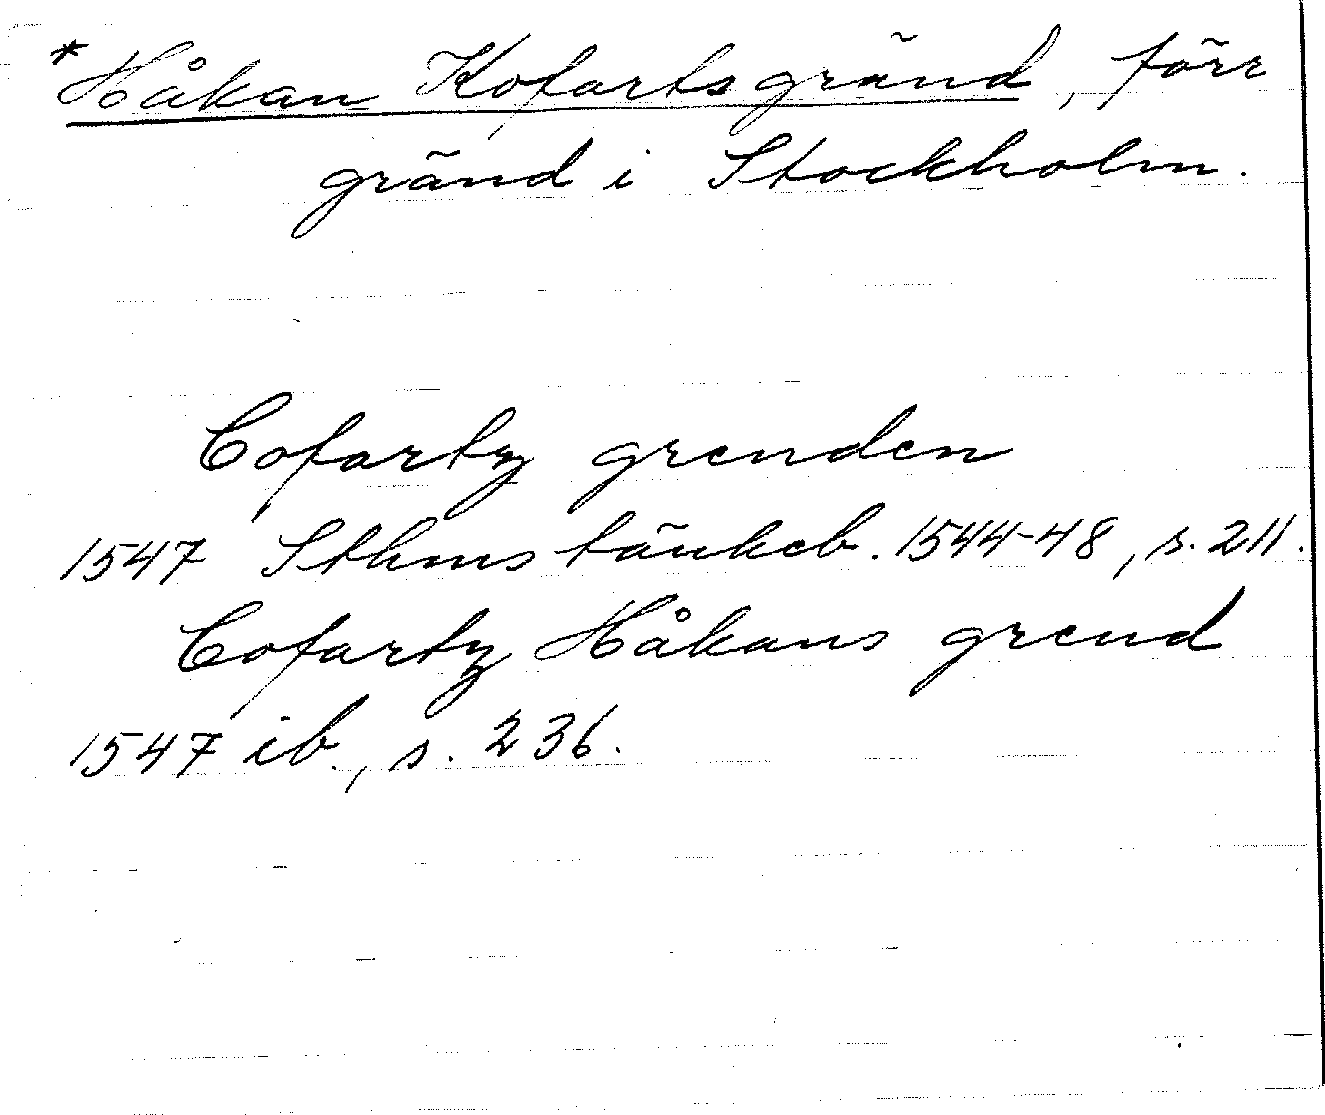 *Håkan Kofartsgränd, förr
gränd i Stockholm.
Cofartz grenden
1547 Sthms tänkeb. 1544-48, s. 211.
Cofartz Håkans grend
1547 ib., s. 236.